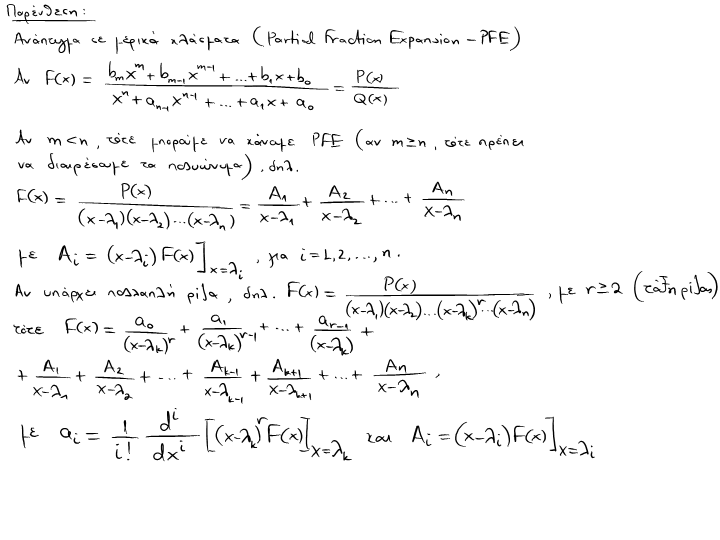 Παρένθεση:
Ανάπτυγμα σε μερικά κλάσματα (Partial Fraction Expansion - PFE)
Αν F(x) = (b_m x^m + b_{m-1} x^{m-1} + ... + b_1 x + b_0) / (x^n + a_{n-1} x^{n-1} + ... + a_1 x + a_0) = P(x) / Q(x)
Αν m < n, τότε μπορούμε να κάνουμε PFE (αν m ≥ n, τότε πρέπει
να διαιρέσουμε τα πολυώνυμα), δηλ.
F(x) = P(x) / ((x-λ_1)(x-λ_2)...(x-λ_n)) = A_1/(x-λ_1) + A_2/(x-λ_2) + ... + A_n/(x-λ_n)
με A_i = (x-λ_i) F(x)]_{x=λ_i}, για i = 1, 2, ..., n.
Αν υπάρχει πολλαπλή ρίζα, δηλ. F(x) = P(x) / ((x-λ_1)(x-λ_2)...(x-λ_k)^r...(x-λ_n)), με r ≥ 2 (τάξη ρίζας)
τότε F(x) = a_0/(x-λ_k)^r + a_1/(x-λ_k)^{r-1} + ... + a_{r-1}/(x-λ_k) +
+ A_1/(x-λ_1) + A_2/(x-λ_2) + ... + A_{k-1}/(x-λ_{k-1}) + A_{k+1}/(x-λ_{k+1}) + ... + A_n/(x-λ_n),
με a_i = 1/i! d^i/dx^i [(x-λ_k)^r F(x)]_{x=λ_k} και A_i = (x-λ_i) F(x)]_{x=λ_i}